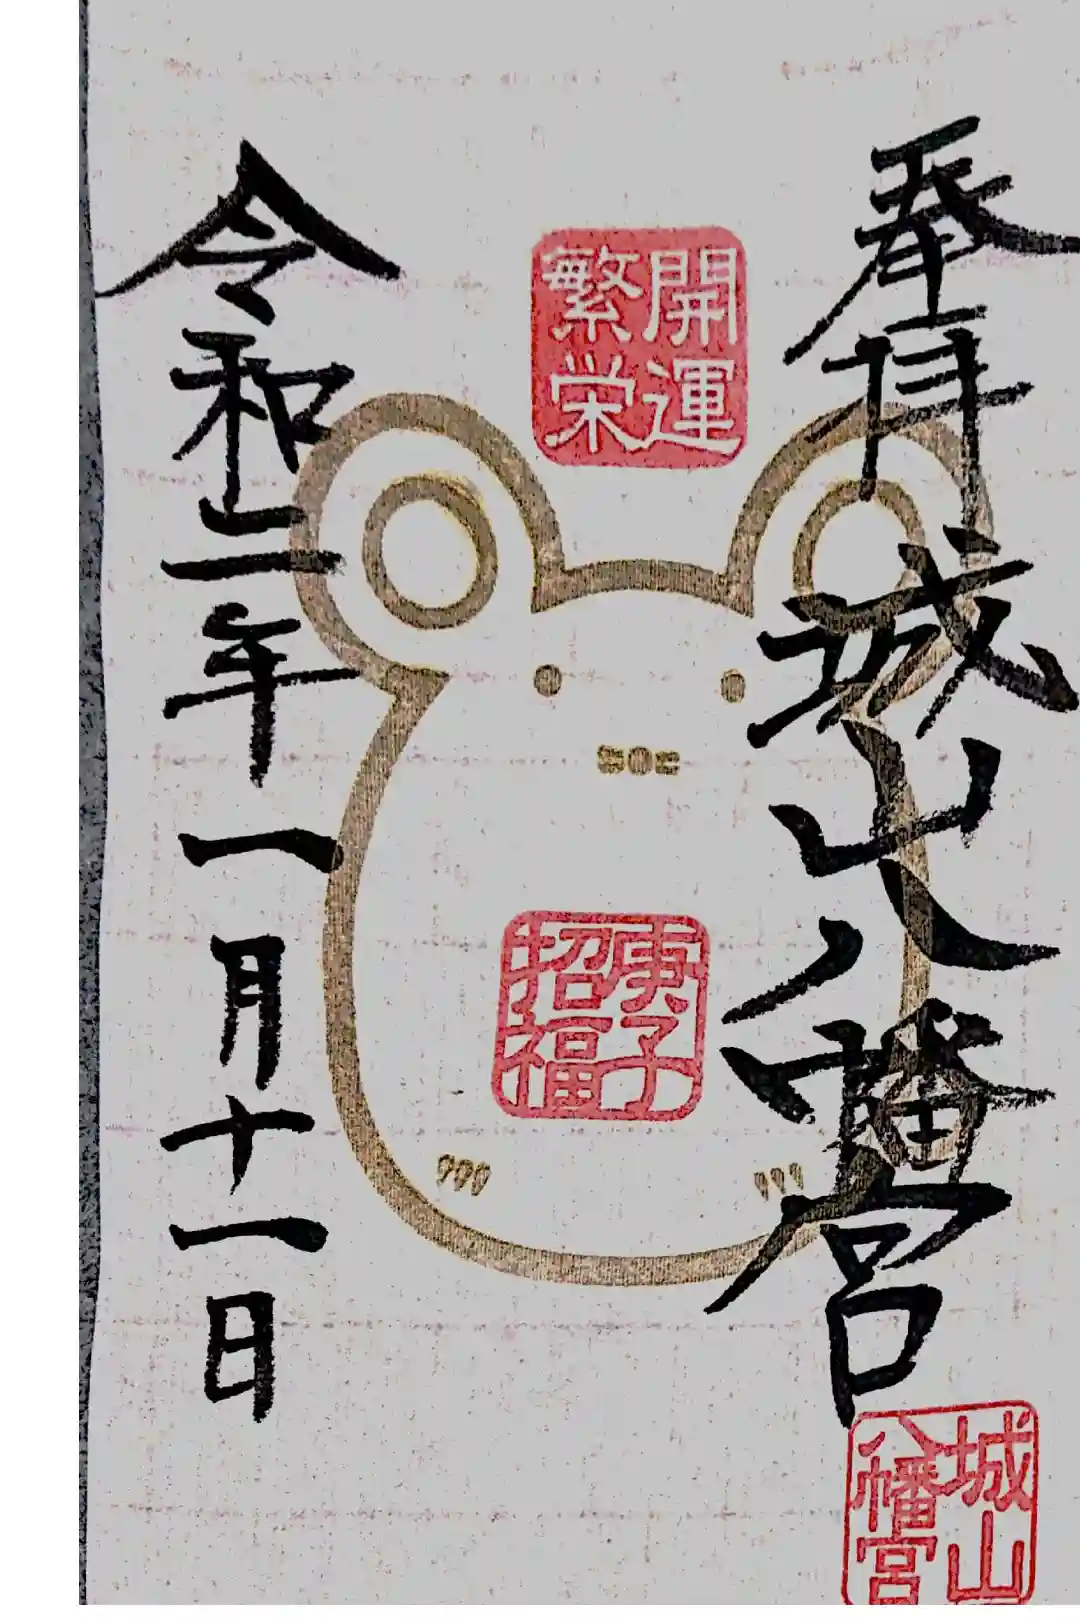 奉拝
城山八幡宮
城山
八幡宮
開運
繁栄
庚子
招福
令和二年一月十一日